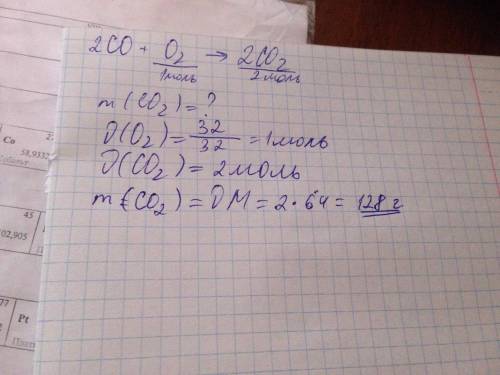 2CO + O₂ → 2CO₂
1моль 2моль
m(CO₂) = ?
ϑ(O₂) = 32/32 = 1моль
ϑ(CO₂) = 2моль
m(CO₂) = ϑM = 2 · 64 = 128 г
Co
58,9332
45
102,905
77
Pt